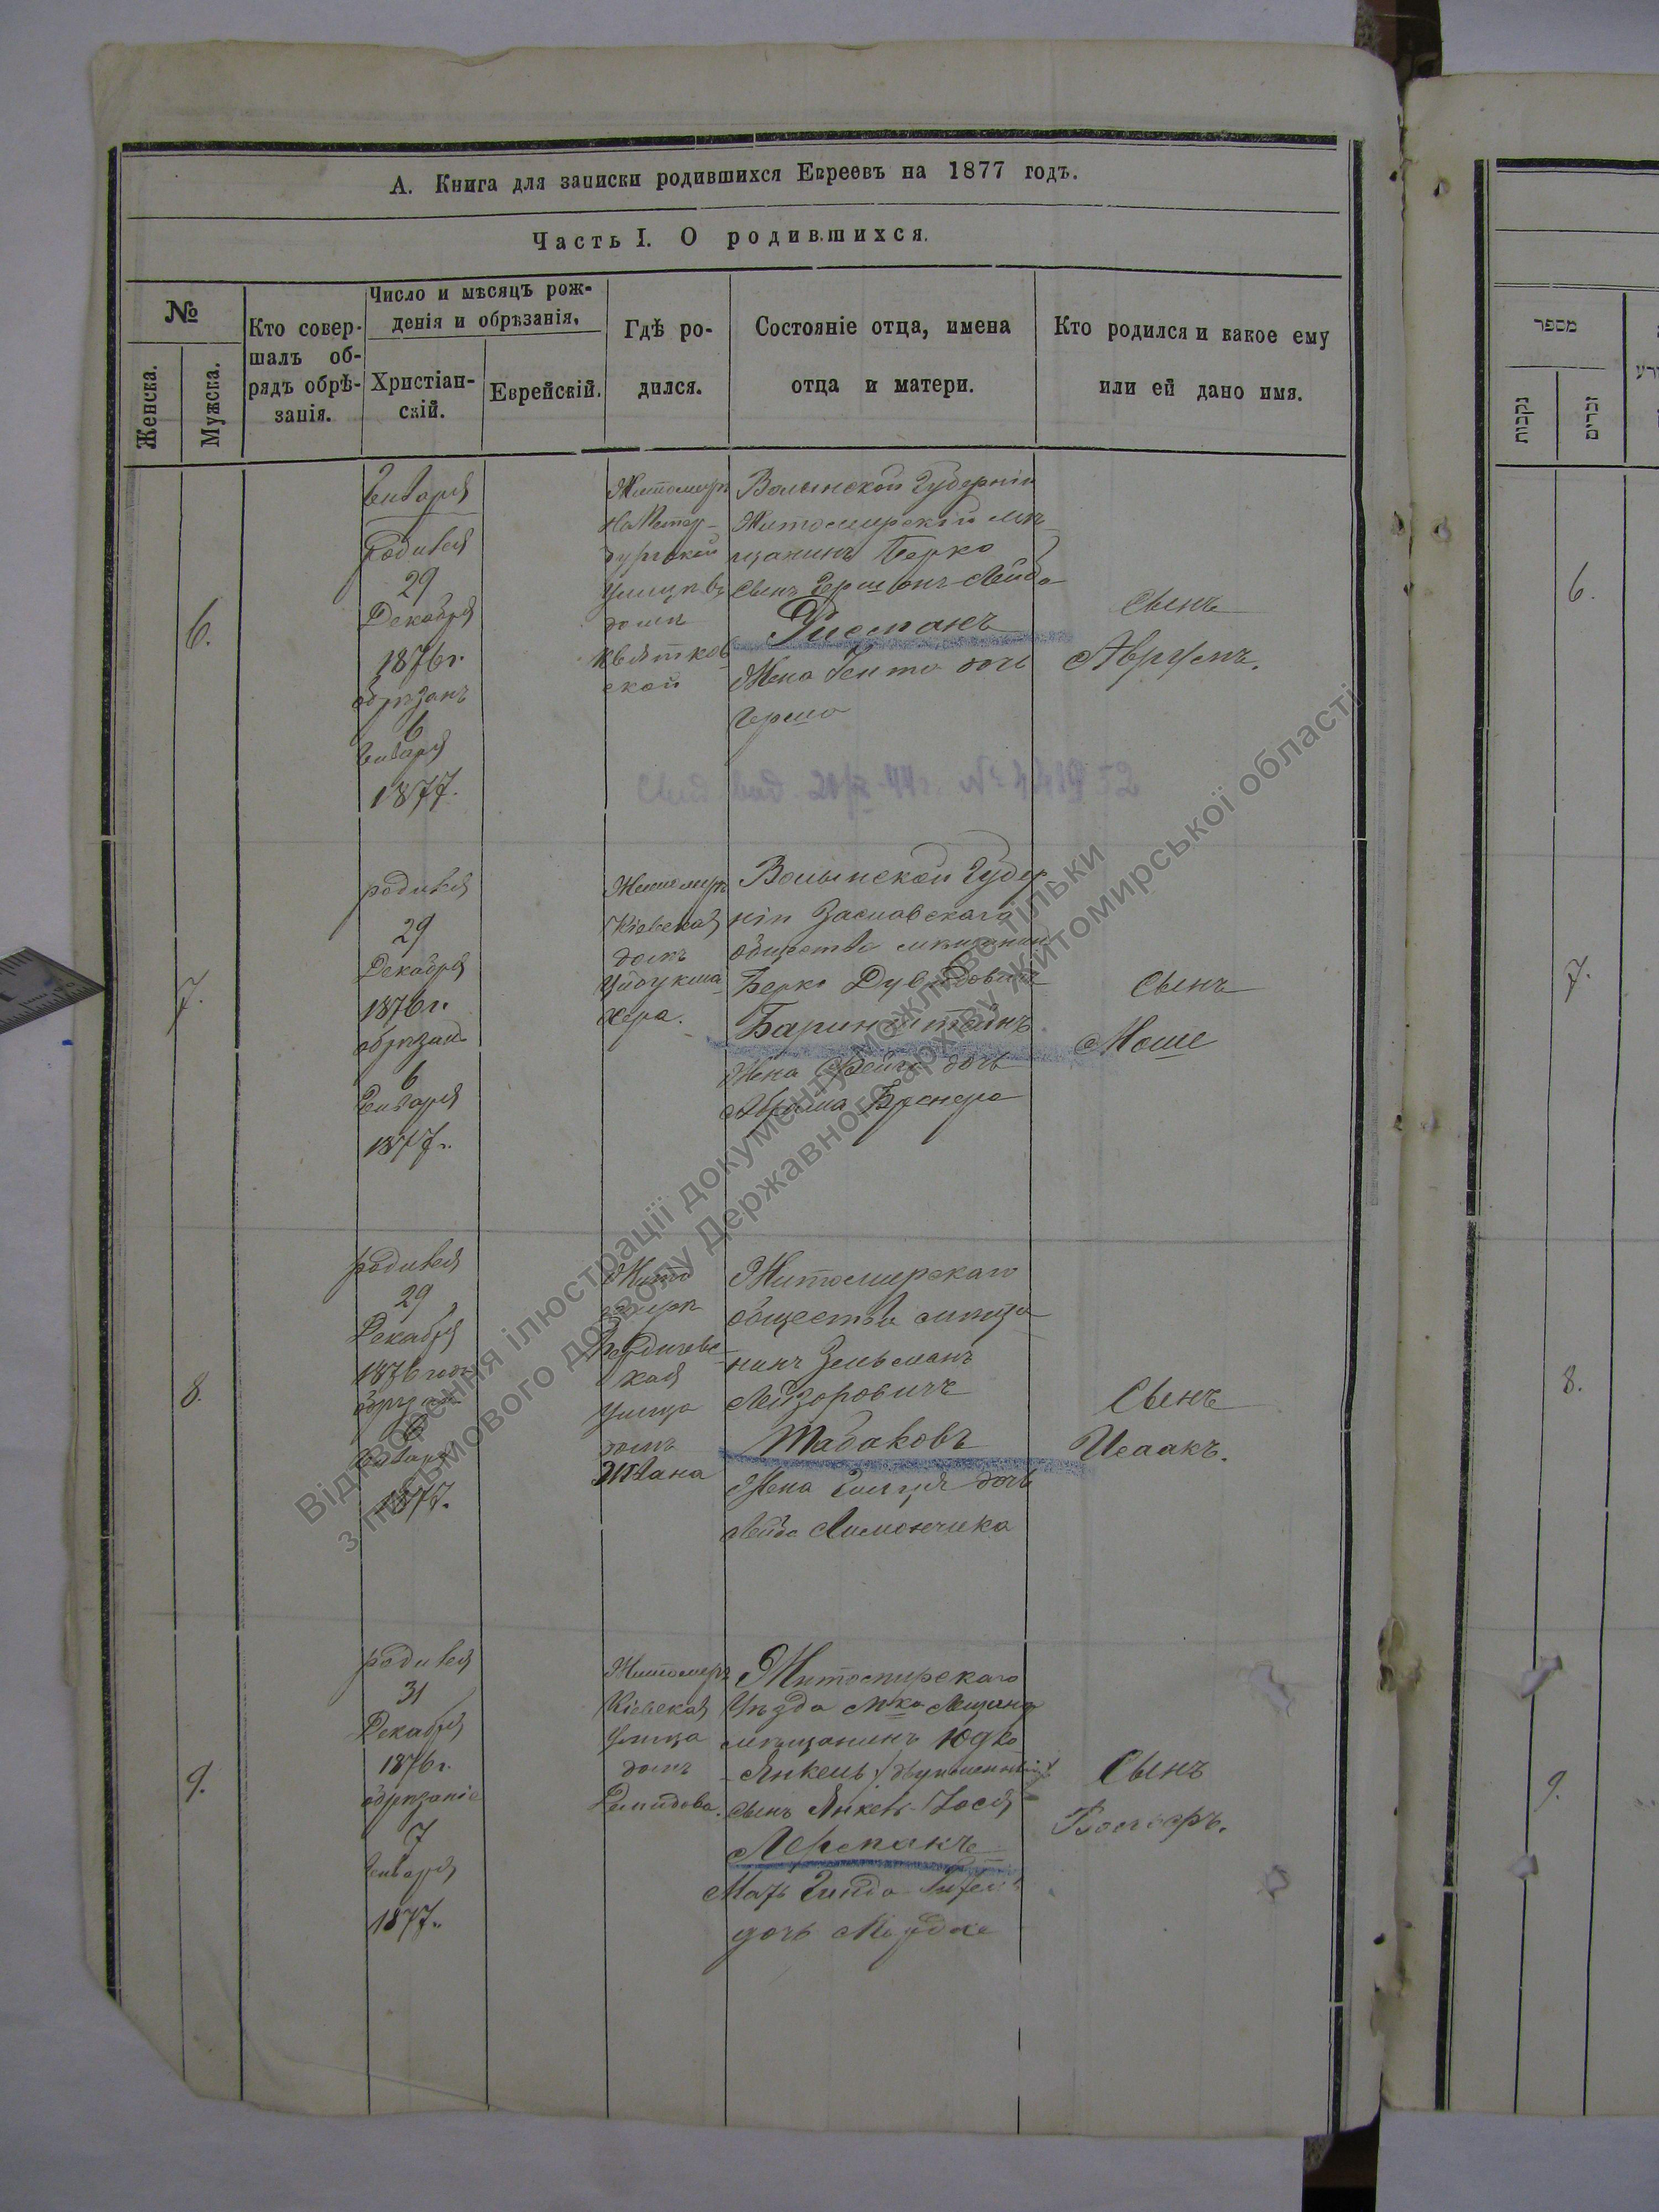 А. Книга для записки родившихся Евреевъ на 1877 годъ.
Часть I. О родившихся.
№
Женска.
Мужска.
Кто совер-
шалъ об-
рядъ обрѣ-
занія.
Число и мѣсяцъ рож-
денія и обрѣзанія.
Христіан-
скій.
Еврейскій.
Гдѣ ро-
дился.
Состояніе отца, имена
отца и матери.
Кто родился и какое ему
или ей дано имя.
6.
Января
Родился
29
Декабря
1876 г.
обрѣзанъ
6
Января
1877.
Житомиръ
домъ
Квятков
ской
Волынской Губерніи
Житомирскій мѣ-
щанинъ Берко
сынъ Гершонъ-Лейба
Жена дочь
Герша
Сынъ
Аврумъ.
7.
родился
29
Декабря
1876 г.
обрѣзанъ
6
Января
1877 г.
Житомиръ
Кіевская
домъ
хера.
Волынской Губер
ніи Заславскаго
общества мѣщанинъ
Берко Дувидовичъ
Баринштейнъ
Жена Фейга дочь
Аврама Бренера
Сынъ
Моше
8.
родился
29
Декабря
1876 года
обрѣзанъ
6
Января
1877.
Жито
миръ
Бердичевс-
кая
Улица
домъ
Житомирскаго
общества мѣща-
нинъ Зельманъ
Лейзоровичъ
Табаковъ
Жена дочь
Лейба Лимончика
Сынъ
Исаакъ.
9.
родился
31
Декабря
1876 г.
обрѣзаніе
7
Января
1877 г.
Житомиръ
Кіевская
Улица
домъ
Демидова.
Житомирскаго
Уѣзда м-ка
мѣщанинъ Юдко
Янкель /двуименный/
сынъ Янкель-Іося
Лерманъ
Мать
дочь
Сынъ
מספר
נקבות
זכרים
6.
7.
8.
9.
Відтворення ілюстрації документу можливе тільки
з письмового дозволу Державного архіву Житомирської області